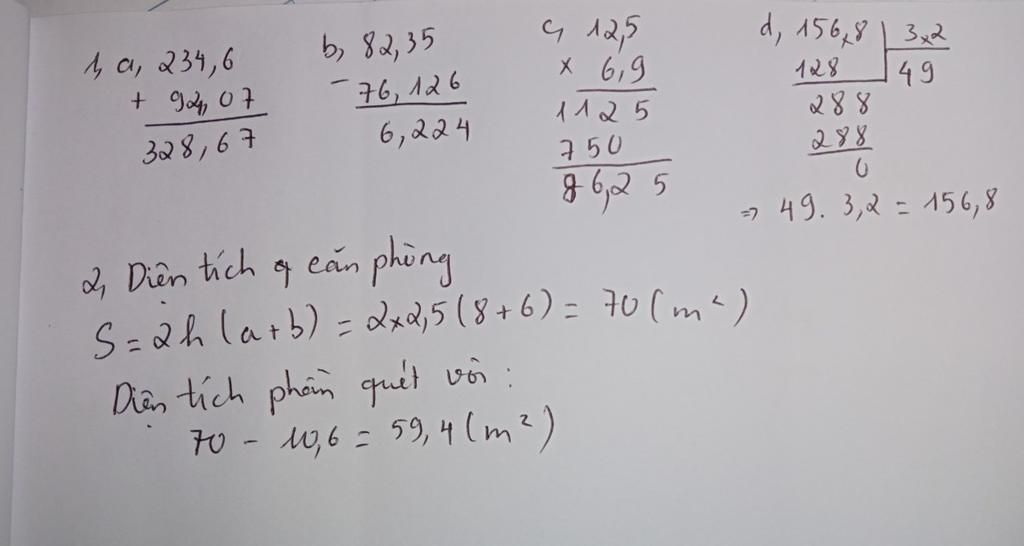 1, a, 234,6
+ 94,07
328,67
b, 82,35
- 76,126
6,224
c, 12,5
x 6,9
1125
750
86,25
d, 156,8 3,2
128 49
288
288
0
=> 49. 3,2 = 156,8
2, Diện tích căn phòng
S = 2h (a+b) = 2x2,5 (8+6) = 70 (m²)
Diện tích phần quét vôi :
70 - 10,6 = 59,4 (m²)